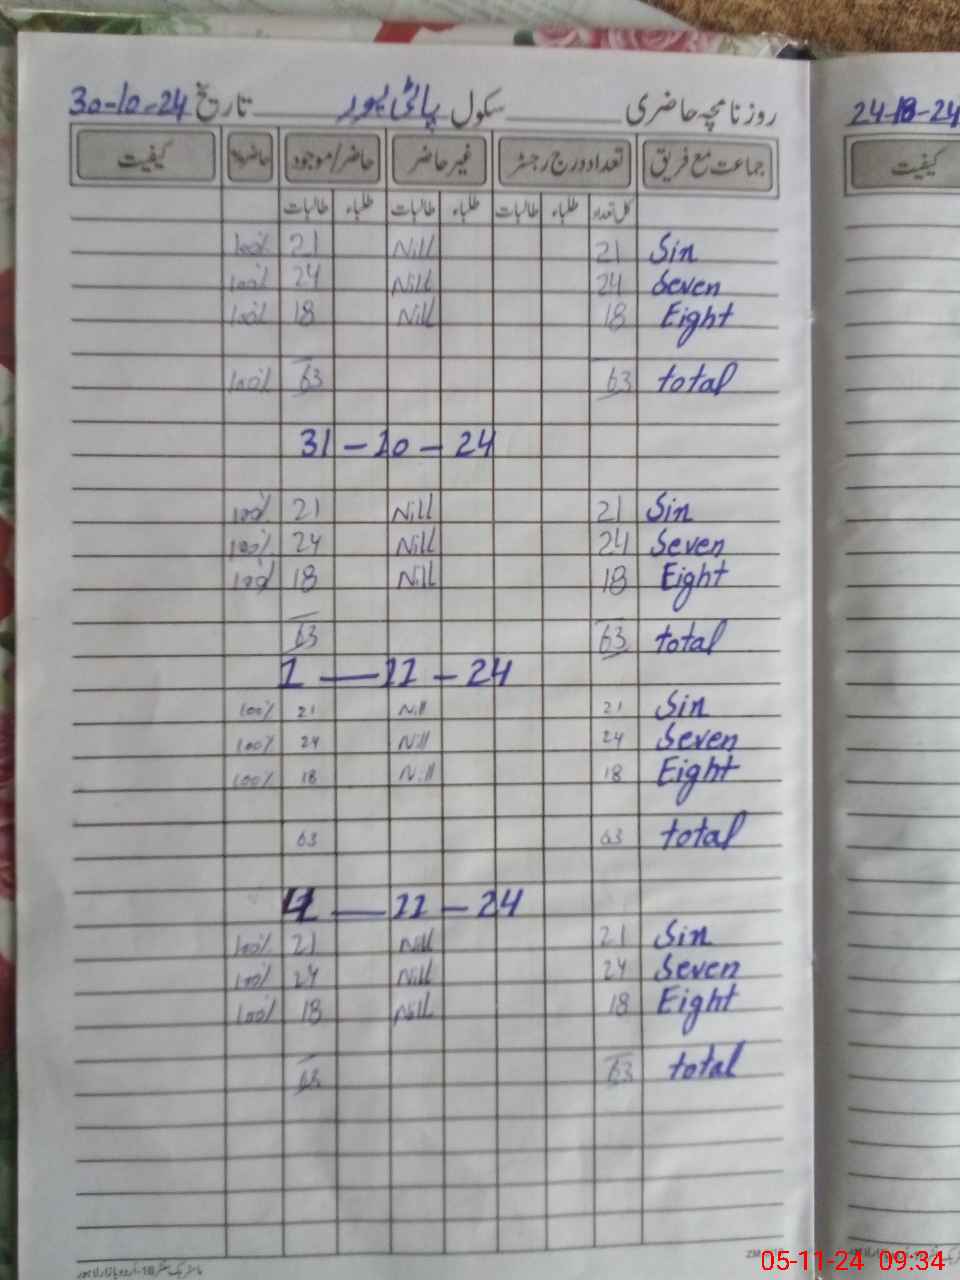 روزنامچہ حاضری ــــــــ سکول پائی پور ــــــــ تاریخ 30-10-24
جماعت مع فریق تعداد درج رجسٹر غیر حاضر حاضر/موجود حاضر% کیفیت
کل تعداد طلباء طالبات طلباء طالبات طلباء طالبات
Sin 21 Nill 21 100%
Seven 24 Nill 24 100%
Eight 18 Nill 18 100%
total 63 63 100%
31-10-24
Sin 21 Nill 21 100%
Seven 24 Nill 24 100%
Eight 18 Nill 18 100%
total 63 63
1-11-24
Sin 21 Nill 21 100%
Seven 24 Nill 24 100%
Eight 18 Nill 18 100%
total 63 63
4-11-24
Sin 21 Nill 21 100%
Seven 24 Nill 24 100%
Eight 18 Nill 18 100%
total 63 63
24-10-24
کیفیت
05-11-24 09:34